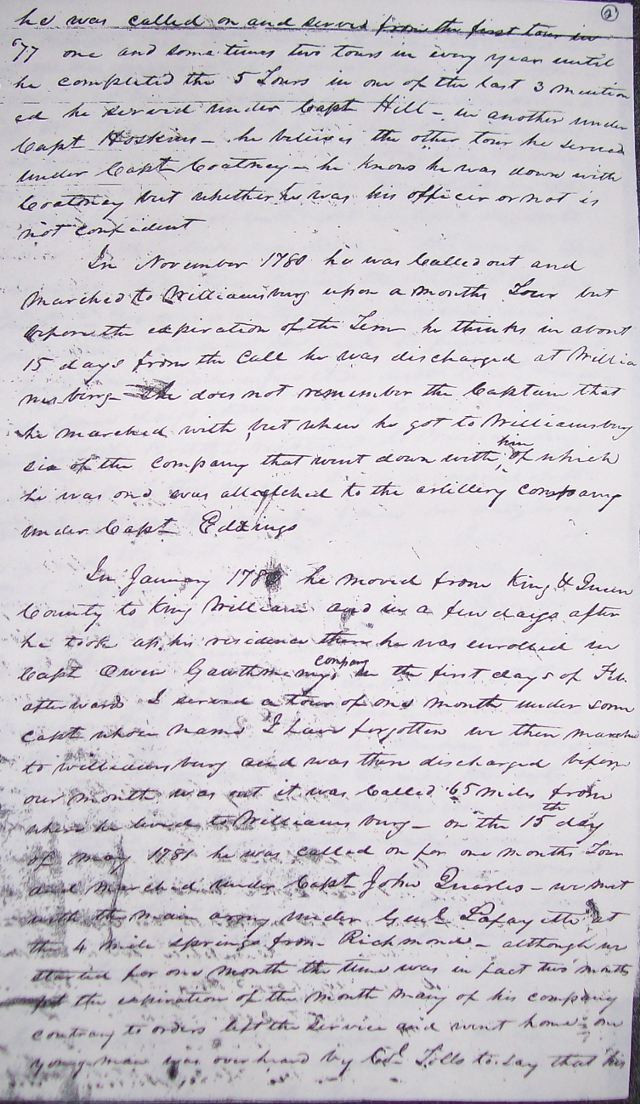 2
he was called on and served from the first tour in
'77 one and sometimes two tours in every year until
he completed the 5 Tours in one of the last 3 mention
ed he served under Capt Hill - in another under
Capt Hoskins - he believes the other tour he served
under Capt Coatney - he knows he was down with
Coatney but whether he was his officer or not is
not confident
In November 1780 he was Called out and
Marched to Williamsburg upon a months Tour but
before the expiration of the Term he thinks in about
15 days from the Call he was discharged at Willia
msburg - he does not remember the Captain that
he marched with but when he got to Williamsburg
six of the company that went down with him, of which
he was one was attached to the artillery company
under Capt Edzings
In January 178 he moved from King & Queen
County to King William and in a few days after
he took up his residence there he was enrolled in
Capt Owen company in the first days of Feb.
afterward I served a tour of one month under some
capt whose name I have forgotten we then marched
to williamsburg and was then discharged before
our month was out it was Called 65 Miles from
where he lived to Williamsburg - on the 15th day
of May 1781 he was called on for one months Tour
and marched under Capt John Quarles - we met
with the main army under Genl Lafayette at
the 4 mile springs from Richmond - although we
started for one month the time was in fact two months
at the expiration of the month many of his company
contrary to orders left the service and went home - one
young man was overheard by to say that his